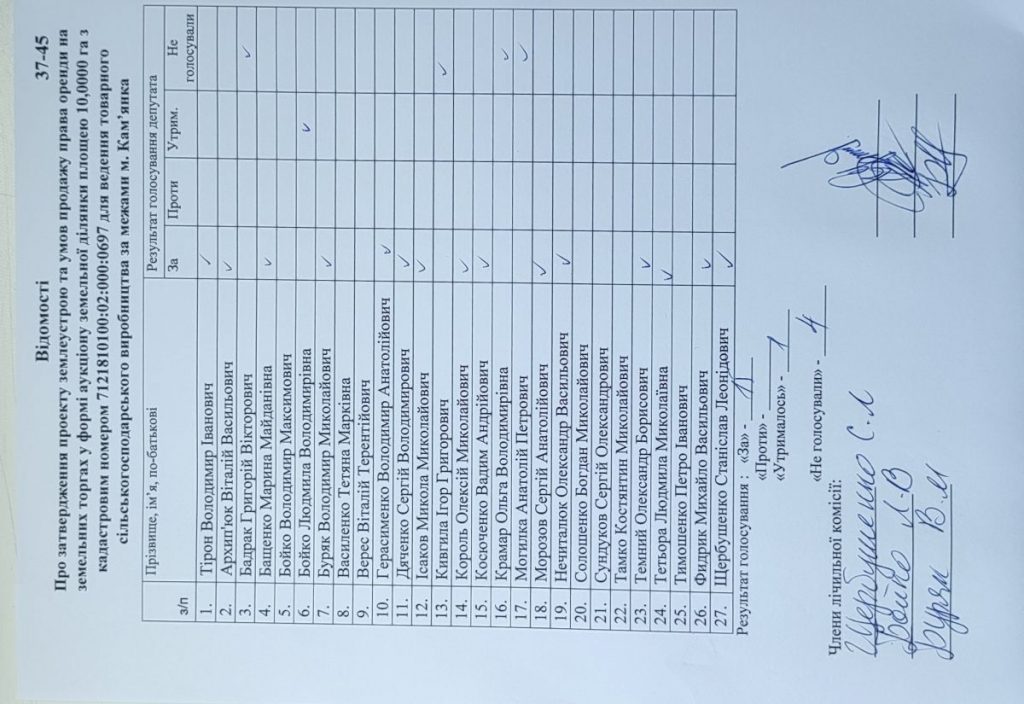 37-45
Відомості
Про затвердження проекту землеустрою та умов продажу права оренди на
земельних торгах у формі аукціону земельної ділянки площею 10,0000 га з
кадастровим номером 7121810100:02:000:0697 для ведення товарного
сільськогосподарського виробництва за межами м. Кам’янка
з/п Прізвище, ім’я, по-батькові Результат голосування депутата
За Проти Утрим. Не голосували
1. Тірон Володимир Іванович
2. Архип'юк Віталій Васильович
3. Бадрак Григорій Вікторович
4. Бащенко Марина Майданівна
5. Бойко Володимир Максимович
6. Бойко Людмила Володимирівна
7. Буряк Володимир Миколайович
8. Василенко Тетяна Марківна
9. Верес Віталій Терентійович
10. Герасименко Володимир Анатолійович
11. Дяченко Сергій Володимирович
12. Ісаков Микола Миколайович
13. Кивгила Ігор Григорович
14. Король Олексій Миколайович
15. Косюченко Вадим Андрійович
16. Крамар Ольга Володимирівна
17. Могилка Анатолій Петрович
18. Морозов Сергій Анатолійович
19. Нечиталюк Олександр Васильович
20. Солошенко Богдан Миколайович
21. Сундуков Сергій Олександрович
22. Тамко Костянтин Миколайович
23. Темний Олександр Борисович
24. Тетьора Людмила Миколаївна
25. Тимошенко Петро Іванович
26. Фидрик Михайло Васильович
27. Щербушенко Станіслав Леонідович
Результат голосування : «За» -
«Проти» -
«Утрималось» - 1
«Не голосували» - 4
Члени лічильної комісії:
Щербушенко С.Л
Бойко Л.В
Буряк В.М